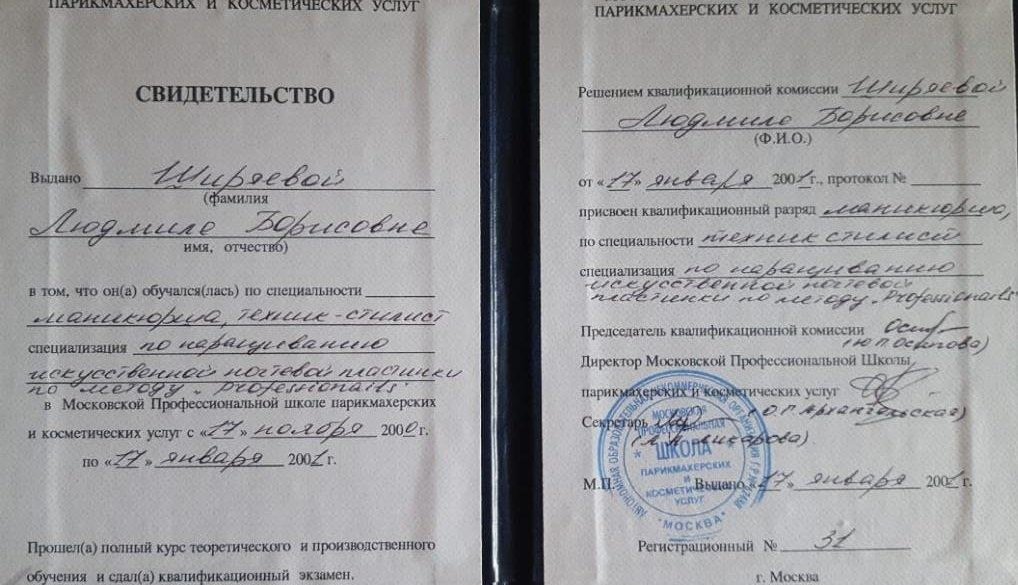 ПАРИКМАХЕРСКИХ И КОСМЕТИЧЕСКИХ УСЛУГ
СВИДЕТЕЛЬСТВО
Выдано Ширяевой
(фамилия
Людмиле Борисовне
имя, отчество)
в том, что он(а) обучался(лась) по специальности
маникюрша, техник-стилист
специализация по наращиванию
искусственной ногтевой пластики
по методу „Professionails"
в Московской Профессиональной школе парикмахерских
и косметических услуг с «17» ноября 2000г.
по «17» января 2001г.
Прошел(а) полный курс теоретического и производственного
обучения и сдал(а) квалификационный экзамен.
ПАРИКМАХЕРСКИХ И КОСМЕТИЧЕСКИХ УСЛУГ
Решением квалификационной комиссии Ширяевой
Людмиле Борисовне
(Ф.И.О.)
от «17» января 2001г., протокол №
присвоен квалификационный разряд маникюрша,
по специальности техник стилист
специализация по наращиванию
искусственной ногтевой
пластинки по методу „Professionails"
Председатель квалификационной комиссии
(Ю.П.Осипова)
Директор Московской Профессиональной Школы
парикмахерских и косметических услуг
(О.Г.Архангельская)
Секретарь
М.П. Выдано «17» января 2001г.
Регистрационный № 31
г. Москва
АВТОНОМНАЯ ОБРАЗОВАТЕЛЬНАЯ НЕКОММЕРЧЕСКАЯ ОРГАНИЗАЦИЯ
МОСКОВСКАЯ
ПРОФЕССИОНАЛЬНАЯ
ШКОЛА
ПАРИКМАХЕРСКИХ
И
КОСМЕТИЧЕСКИХ
УСЛУГ
*МОСКВА*